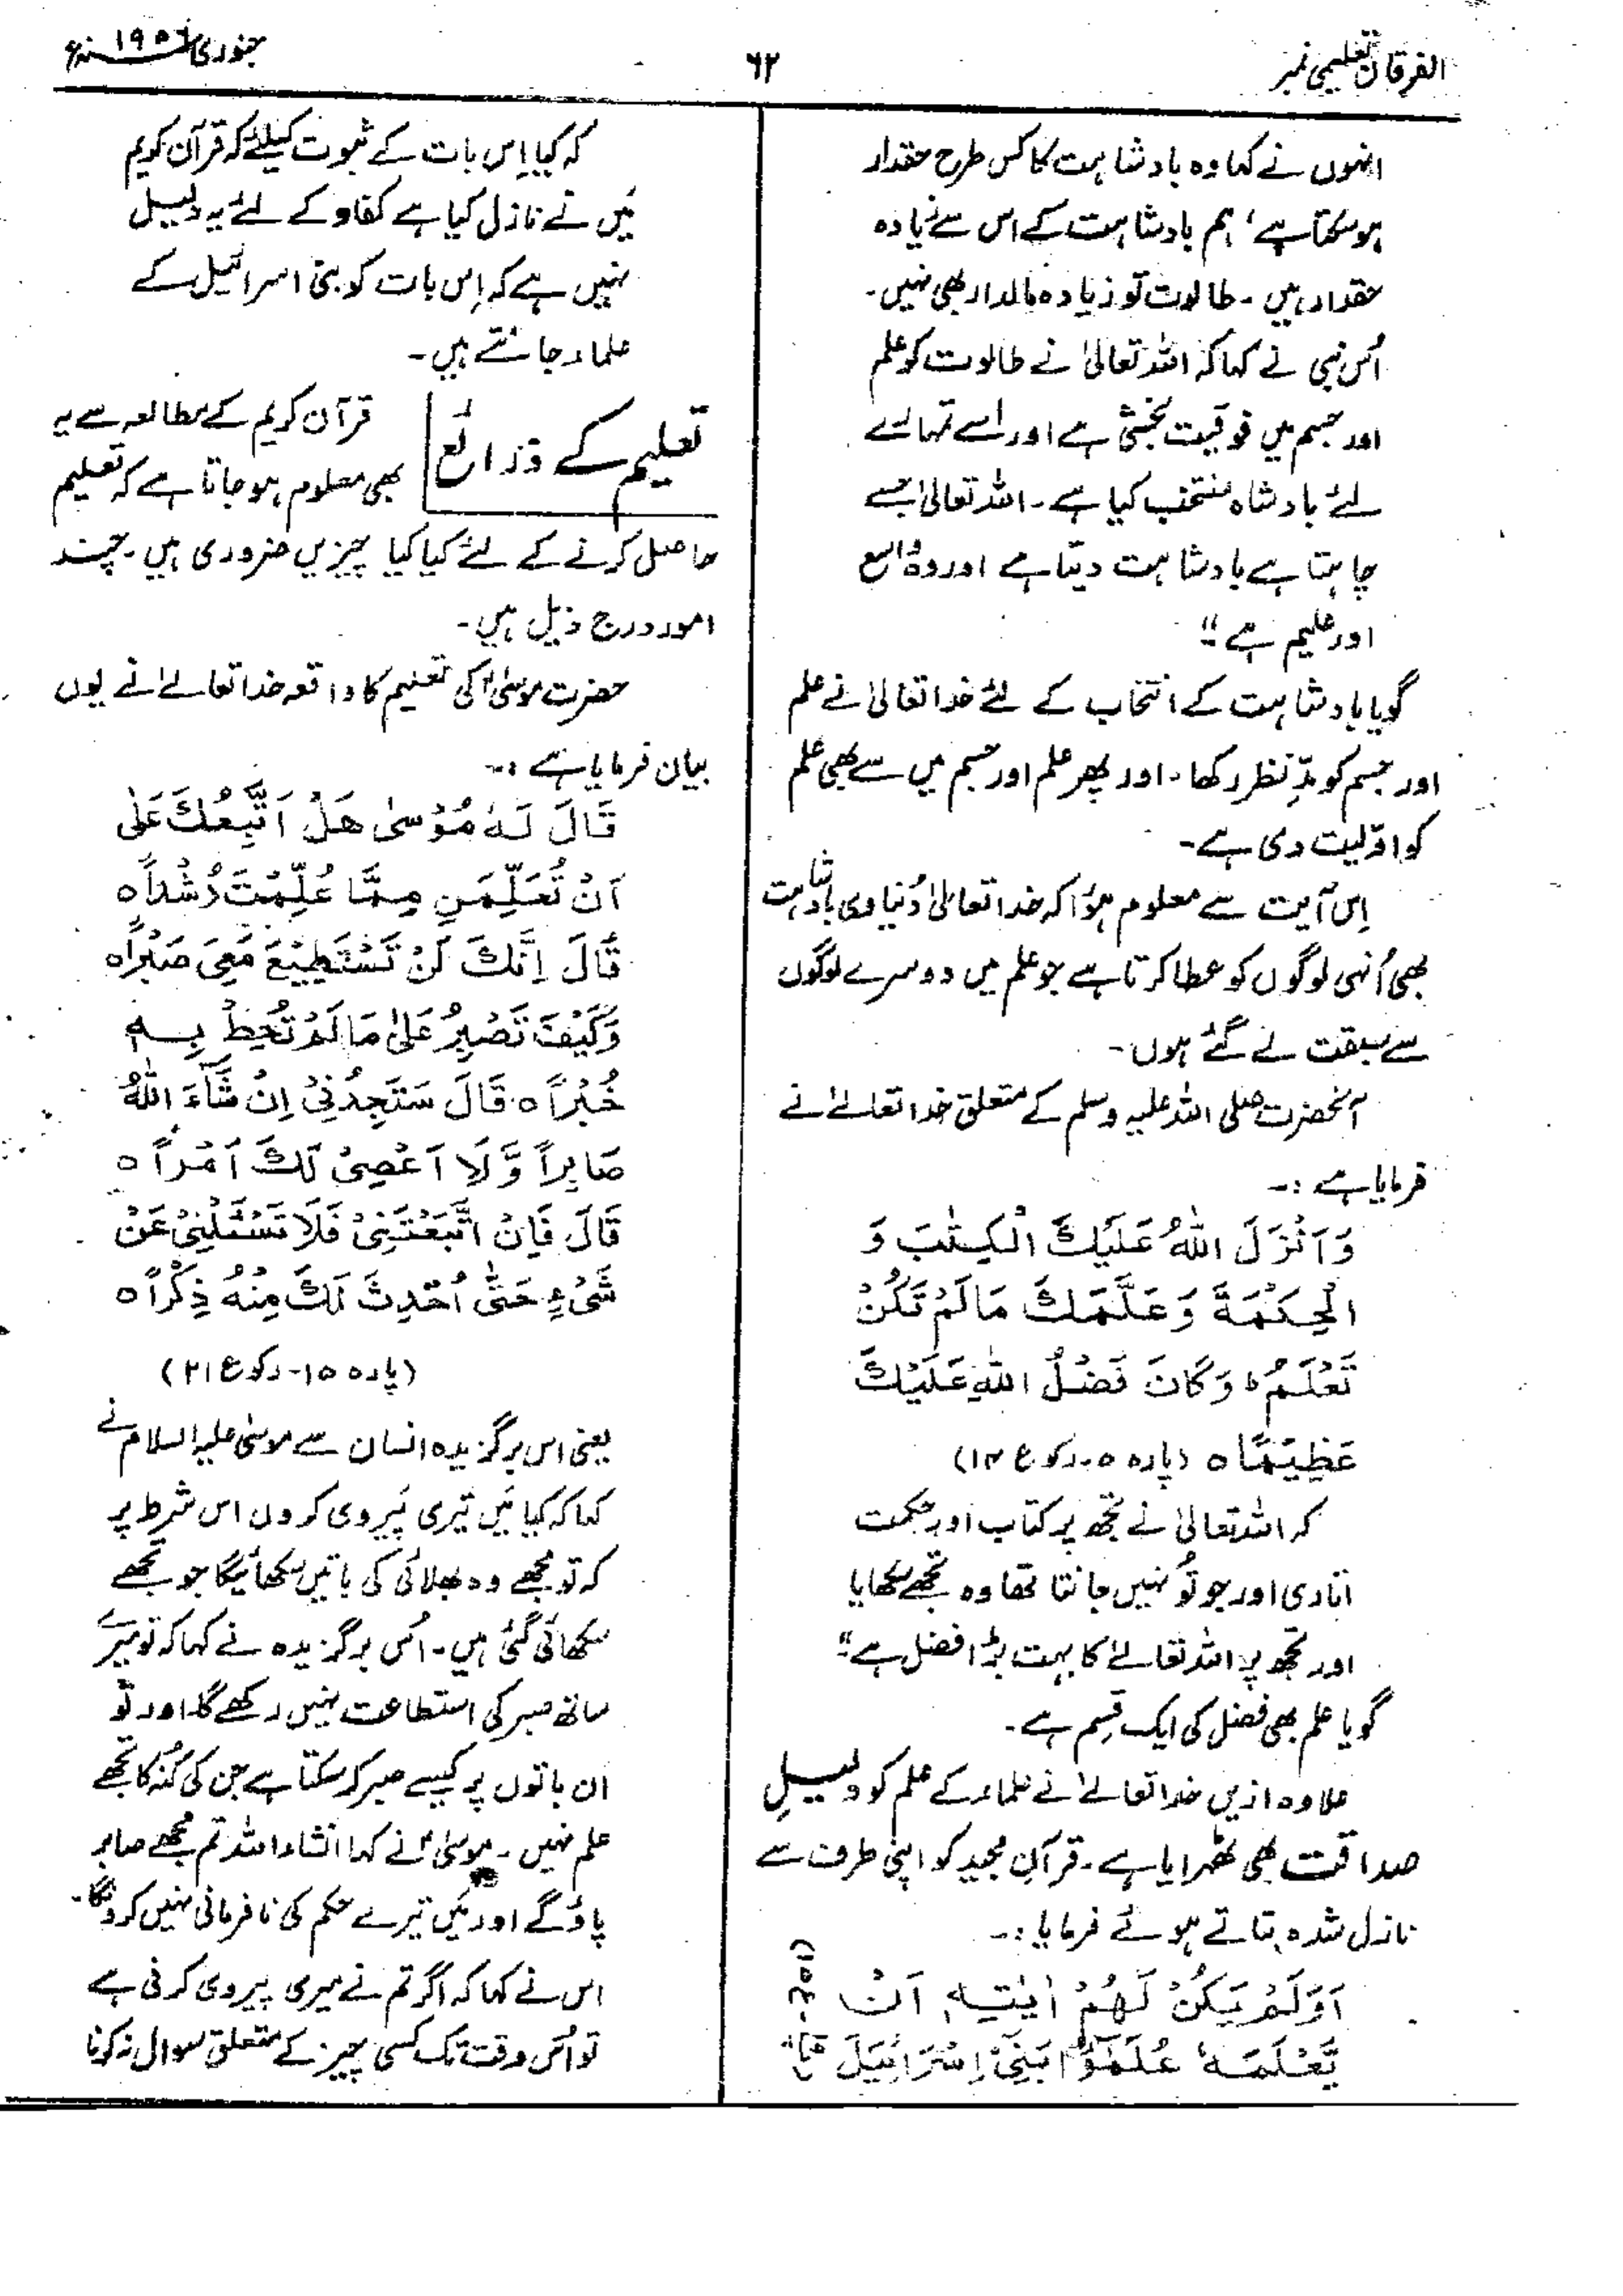 الفرقان تعلیمی نمبر
۶۲
جنوری ۱۹۵۶ء
انہوں نے کہا وہ بادشاہت کا کس طرح حقدار
ہو سکتا ہے، ہم بادشاہت کے اس سے زیادہ
حقدار ہیں۔ طالوت تو زیادہ مالدار بھی نہیں۔
اُس نبی نے کہا کہ اللہ تعالیٰ نے طالوت کو علم
اور جسم میں فوقیت بخشی ہے اور اسے تمہارے
لئے بادشاہ منتخب کیا ہے۔ اللہ تعالیٰ جسے
چاہتا ہے بادشاہت دیتا ہے اور وہ واسع
اور علیم ہے"
گویا بادشاہت کے انتخاب کے لئے خدا تعالیٰ نے علم
اور جسم کو مدِّ نظر رکھا۔ اور پھر علم اور جسم میں سے بھی علم
کو اوّلیت دی ہے۔
اِس آیت سے معلوم ہؤا کہ خدا تعالیٰ دُنیاوی بادشاہت
بھی اُنہی لوگوں کو عطا کرتا ہے جو علم میں دوسرے لوگوں
سے سبقت لے گئے ہوں۔
آنحضرت صلی اللہ علیہ وسلم کے متعلق خدا تعالےٰ نے
فرمایا ہے :۔
وَ اَنْزَلَ اللّٰهُ عَلَيْكَ الْكِتٰبَ وَ
الْحِكْمَةَ وَ عَلَّمَكَ مَا لَمْ تَكُنْ
تَعْلَمُ ؕ وَ كَانَ فَضْلُ اللّٰهِ عَلَيْكَ
عَظِيْمًا ٥ (پارہ ۵۔ رکوع ۱۴)
کہ اللہ تعالیٰ نے تجھ پر کتاب اور حکمت
اتاری اور جو تُو نہیں جانتا تھا وہ تجھے سکھایا
اور تجھ پر اللہ تعالےٰ کا بہت بڑا فضل ہے"
گویا علم بھی فضل کی ایک قِسم ہے۔
علاوہ ازیں خدا تعالےٰ نے علماء کے علم کو دلیلِ
صداقت بھی ٹھہرایا ہے۔ قرآنِ مجید کو اپنی طرف سے
نازل شدہ بتاتے ہوئے فرمایا :۔
اَوَلَمْ يَكُنْ لَهُمْ اٰيَتِهٖ اَنْ
يَّعْلَمَهٗ عُلَمٰٓؤُا بَنِيْٓ اِسْرَآئِيْلَ
کہ کیا اِس بات کے ثبوت کیلئے کہ قرآن کریم
مَیں نے نازل کیا ہے کفار کے لئے یہ دلیل
نہیں ہے کہ اِس بات کو بنی اسرائیل کے
علماء جانتے ہیں۔
تعلیم کے ذرائع
قرآن کریم کے مطالعہ سے یہ
بھی معلوم ہو جاتا ہے کہ تعلیم
حاصل کرنے کے لئے کیا کیا چیزیں ضروری ہیں۔ چند
امور درج ذیل ہیں۔
حضرت موسیٰؑ کی تعلیم کا واقعہ خدا تعالےٰ نے یوں
بیان فرمایا ہے :۔
قَالَ لَهٗ مُوْسٰى هَلْ اَتَّبِعُكَ عَلٰى
اَنْ تُعَلِّمَنِ مِمَّا عُلِّمْتَ رُشْدًا ٥
قَالَ اِنَّكَ لَنْ تَسْتَطِيْعَ مَعِيَ صَبْرًا ٥
وَ كَيْفَ تَصْبِرُ عَلٰى مَا لَمْ تُحِطْ بِهٖ
خُبْرًا ٥ قَالَ سَتَجِدُنِيْ اِنْ شَآءَ اللّٰهُ
صَابِرًا وَّ لَا اَعْصِيْ لَكَ اَمْرًا ٥
قَالَ فَاِنْ اتَّبَعْتَنِيْ فَلَا تَسْئَلْنِيْ عَنْ
شَيْءٍ حَتّٰى اُحْدِثَ لَكَ مِنْهُ ذِكْرًا ٥
(پارہ ۱۵۔ رکوع ۲۱)
یعنی اس برگزیدہ انسان سے موسیٰ علیہ السلام نے
کہا کہ کیا مَیں تیری پَیروی کروں اس شرط پر
کہ تو مجھے وہ بھلائی کی باتیں سکھائیگا جو تجھے
سکھائی گئی ہیں۔ اُس برگزیدہ نے کہا کہ تو میرے
ساتھ صبر کی استطاعت نہیں رکھے گا۔ اور تُو
ان باتوں پر کیسے صبر کر سکتا ہے جن کی کُنہ کا تجھے
علم نہیں۔ موسیٰؑ نے کہا انشاء اللہ تم مجھے صابر
پاؤ گے اور مَیں تیرے حکم کی نافرمانی نہیں کرونگا۔
اس نے کہا کہ اگر تم نے میری پیروی کرنی ہے
تو اُس وقت تک کسی چیز کے متعلق سوال نہ کرنا